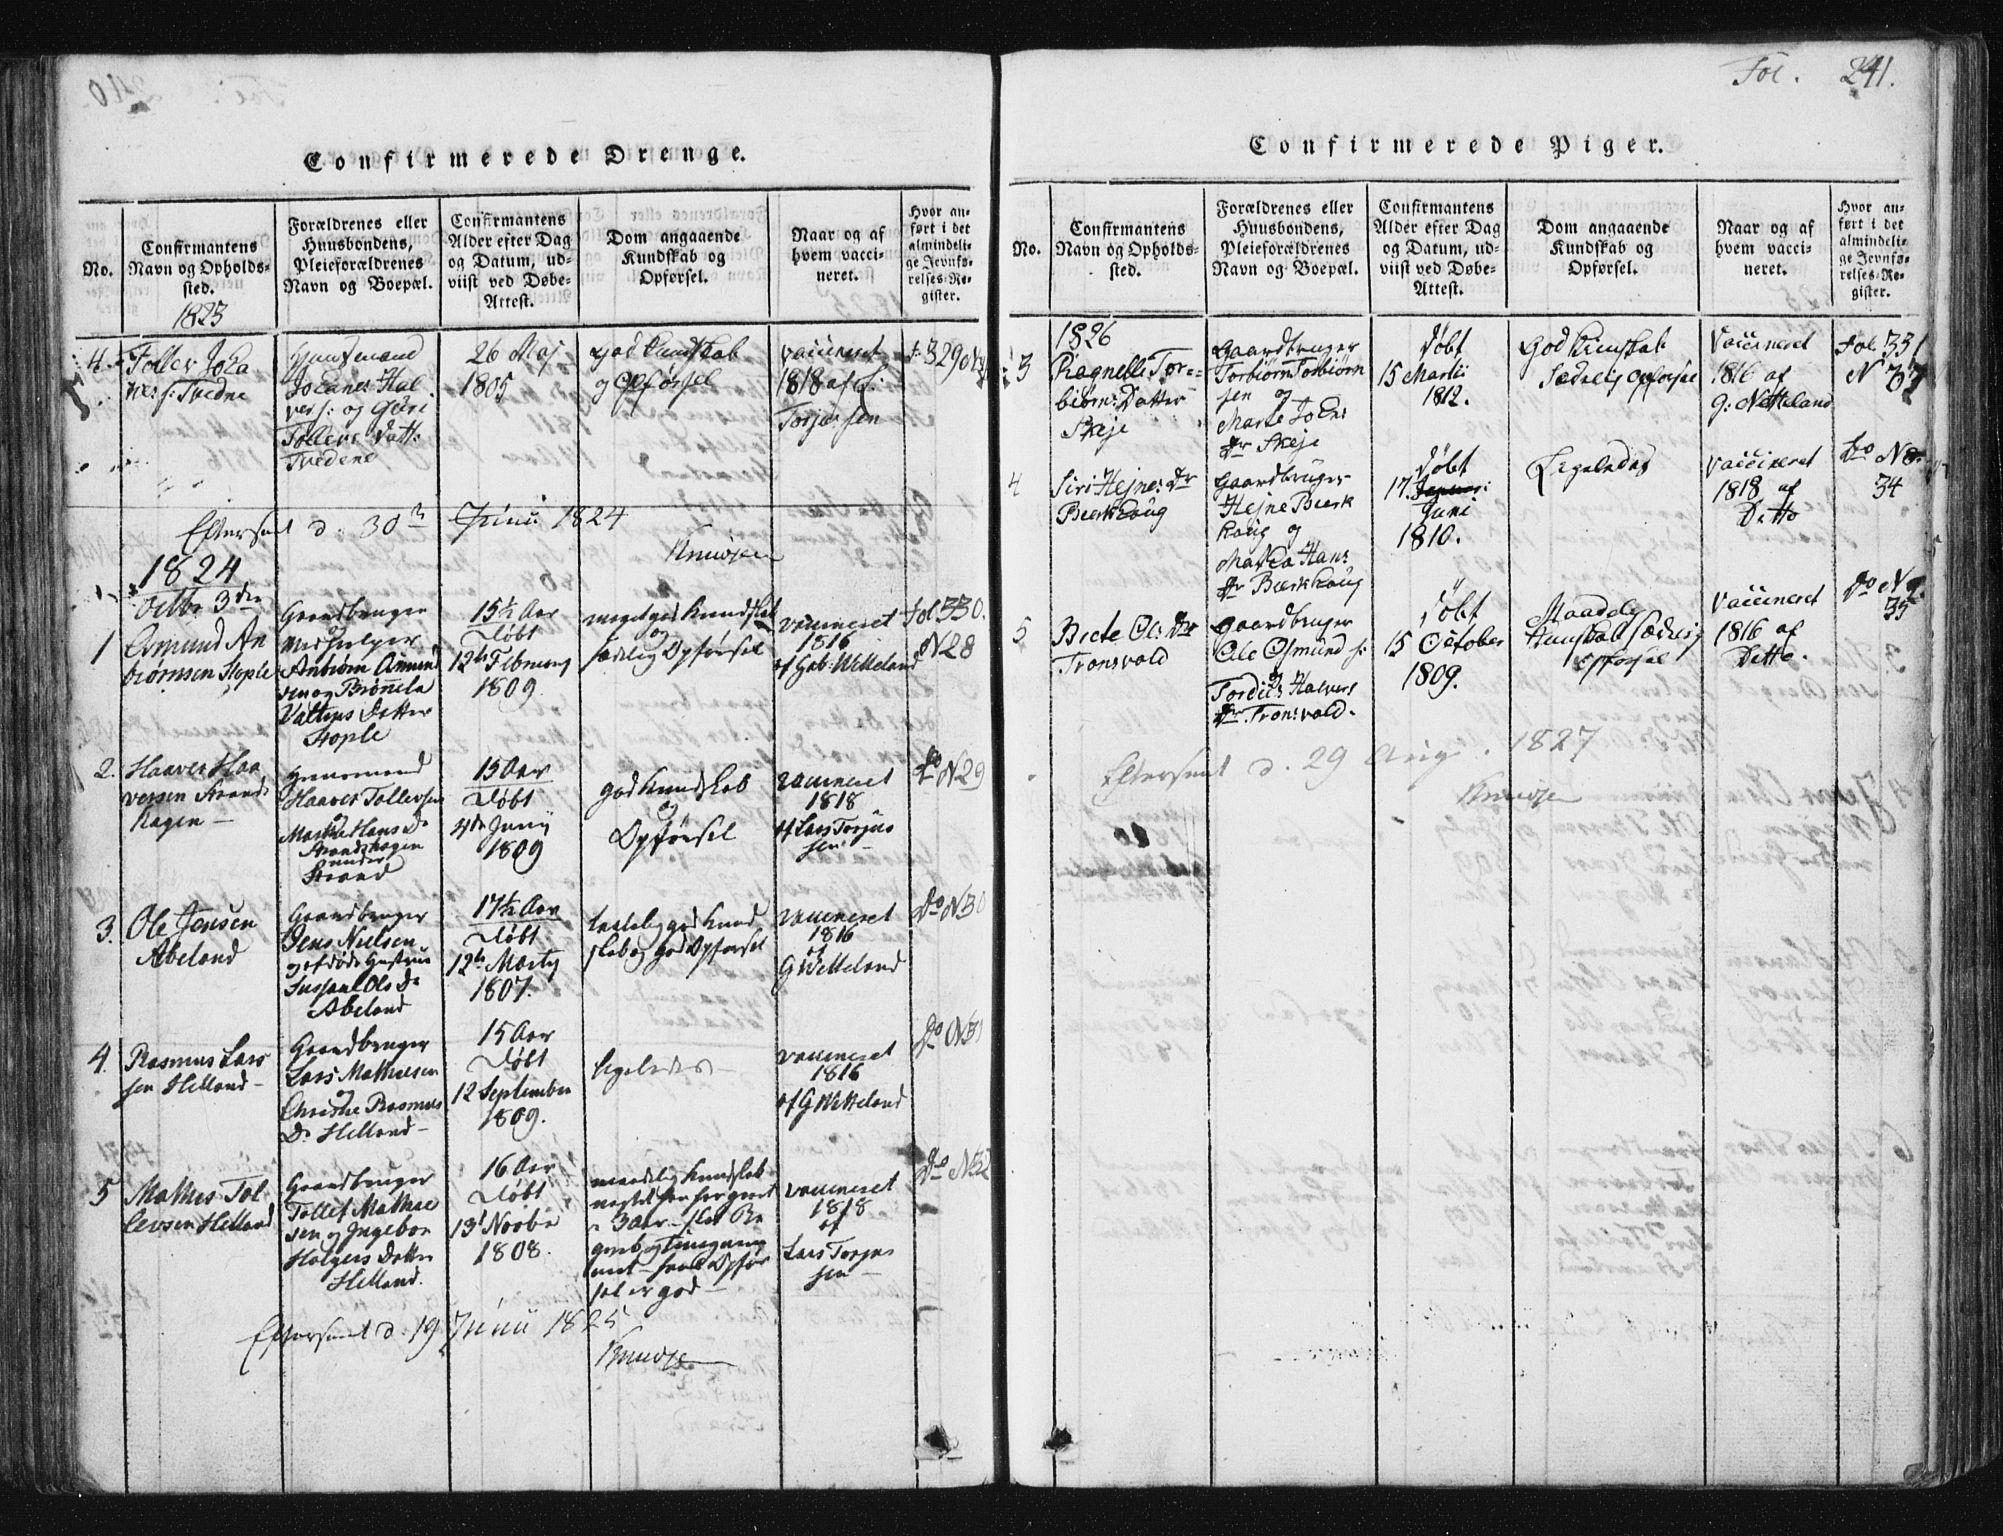 Confirmerede Drenge.
No.
Confirmantens
Navn og Opholds-
sted.
1823
Forældrenes eller
Huusbondens,
Pleieforældrenes
Navn og Boepæl.
Confirmantens
Alder efter Dag
og Datum, ud-
viist ved Døbe-
Attest.
Dom angaaende
Kundskab og
Opførsel.
Naar og af
hvem vacci-
neret.
Hvor an-
ført i det
almindeli-
ge Jevnfø-
relses-Re-
gister.
4
Tollev Joha
nes: s: Tvedne
Huusmand
Johanes Hal
vers: og Guri
Tollevs Datt:
Tvedene
26 Maj
1805
god Kundskab
og Opførsel
vaccineret
1818 af L:
Torjussen
f: 329
Efterseet d: 30 Junii 1824
Knudsen
1824
Octbr 3die
1
Asmund An
biørnsen Stople
Gaardbruger
og
Medhjelper
Anbiørn Asmund
sen og Brønela
Datter
Stople
15½ Aar
Døbt
12te Februarj
1809.
meget god Kundskab
og
sædelig Opførsel
vaccineret
1816
af Gab: Netteland
fol 330.
N 28
2.
Haaver Haa
versen Strand
hagen
Huusmand
Haaver Tollevsen
og
Marthe Hans Dr
Strandhagen
under
Strand
15 Aar
Døbt
4de Junij
1809
god Kundskab
og
Opførsel
vaccineret
1818
af Lars Torjus
sen
Do N 29
3.
Ole Jensen
Abeland
Gaardbruger
Jens Nielsen
og afdøde Hustrue
Ols Dr
Abeland
17½ Aar
Døbt
12te Martij
1807.
god Kund
skab og god Opførsel
vaccineret
1816
af
G Netteland
Do N 30
4.
Rasmus Lars
sen Helland
Gaardbruger
Lars Mathiesen
og
Christie Rasmus
Dr Helland
15 Aar
Døbt
12 September
1809.
ligeledes
vaccineret
1816
af G Netteland
Do N 31
5
Mathis Tol
levsen Helland
Gaardbruger
Tollef Mathie
sen og Ingebor
Holgers Datter
Helland.
16 Aar
Døbt
13 Novbr
1808.
maadelig Kundskab
sel er god
vaccineret
1818
af
Lars Torjus
sen
Do N 32
Efterseet d. 19 Junii 1825
Knudsen
Fol. 241.
Confirmerede Piger.
No.
Confirmantens
Navn og Opholds-
sted.
Forældrenes eller
Huusbondens,
Pleieforældrenes
Navn og Boepæl.
Confirmantens
Alder efter Dag
og Datum, ud-
viist ved Døbe-
Attest.
Dom angaaende
Kundskab og
Opførsel.
Naar og af
hvem vacci-
neret.
Hvor an-
ført i det
almindeli-
ge Jevnfø-
relses-Re-
gister.
1826
3
Ragnelle Tor-
biørns Datter
Skeje
Gaardbruger
Torbiørn Torbiørn
sen og
Marte Johns
Dr Skeje
Døbt
15 Martii
1812.
God Kunskab
Sædelig Opførsel
Vaccineret
1816 af
g: Netteland
Fol. 331
N 33
4
Siri Hejnes Dr
Birkhoug
Gaardbruger
Hejne Birk
houg og
Hans
Dr Birkhoug
Døbt
17
Juni
1810.
Ligeledes
Vaccineret
1818 af
Ditto
Do No
34
5
Birte Ols Dr
Tronsvold
Gaardbruger
Ole Osmund s:
og
Halvers
Dr Tronsvold.
Døbt
15 October
1809.
Maadelig
Kunskab Sædelig
Opførsel
Vaccineret
1816 af
Ditto.
Do N
35
Efterseet d. 29 Aug. 1827
Knudsen